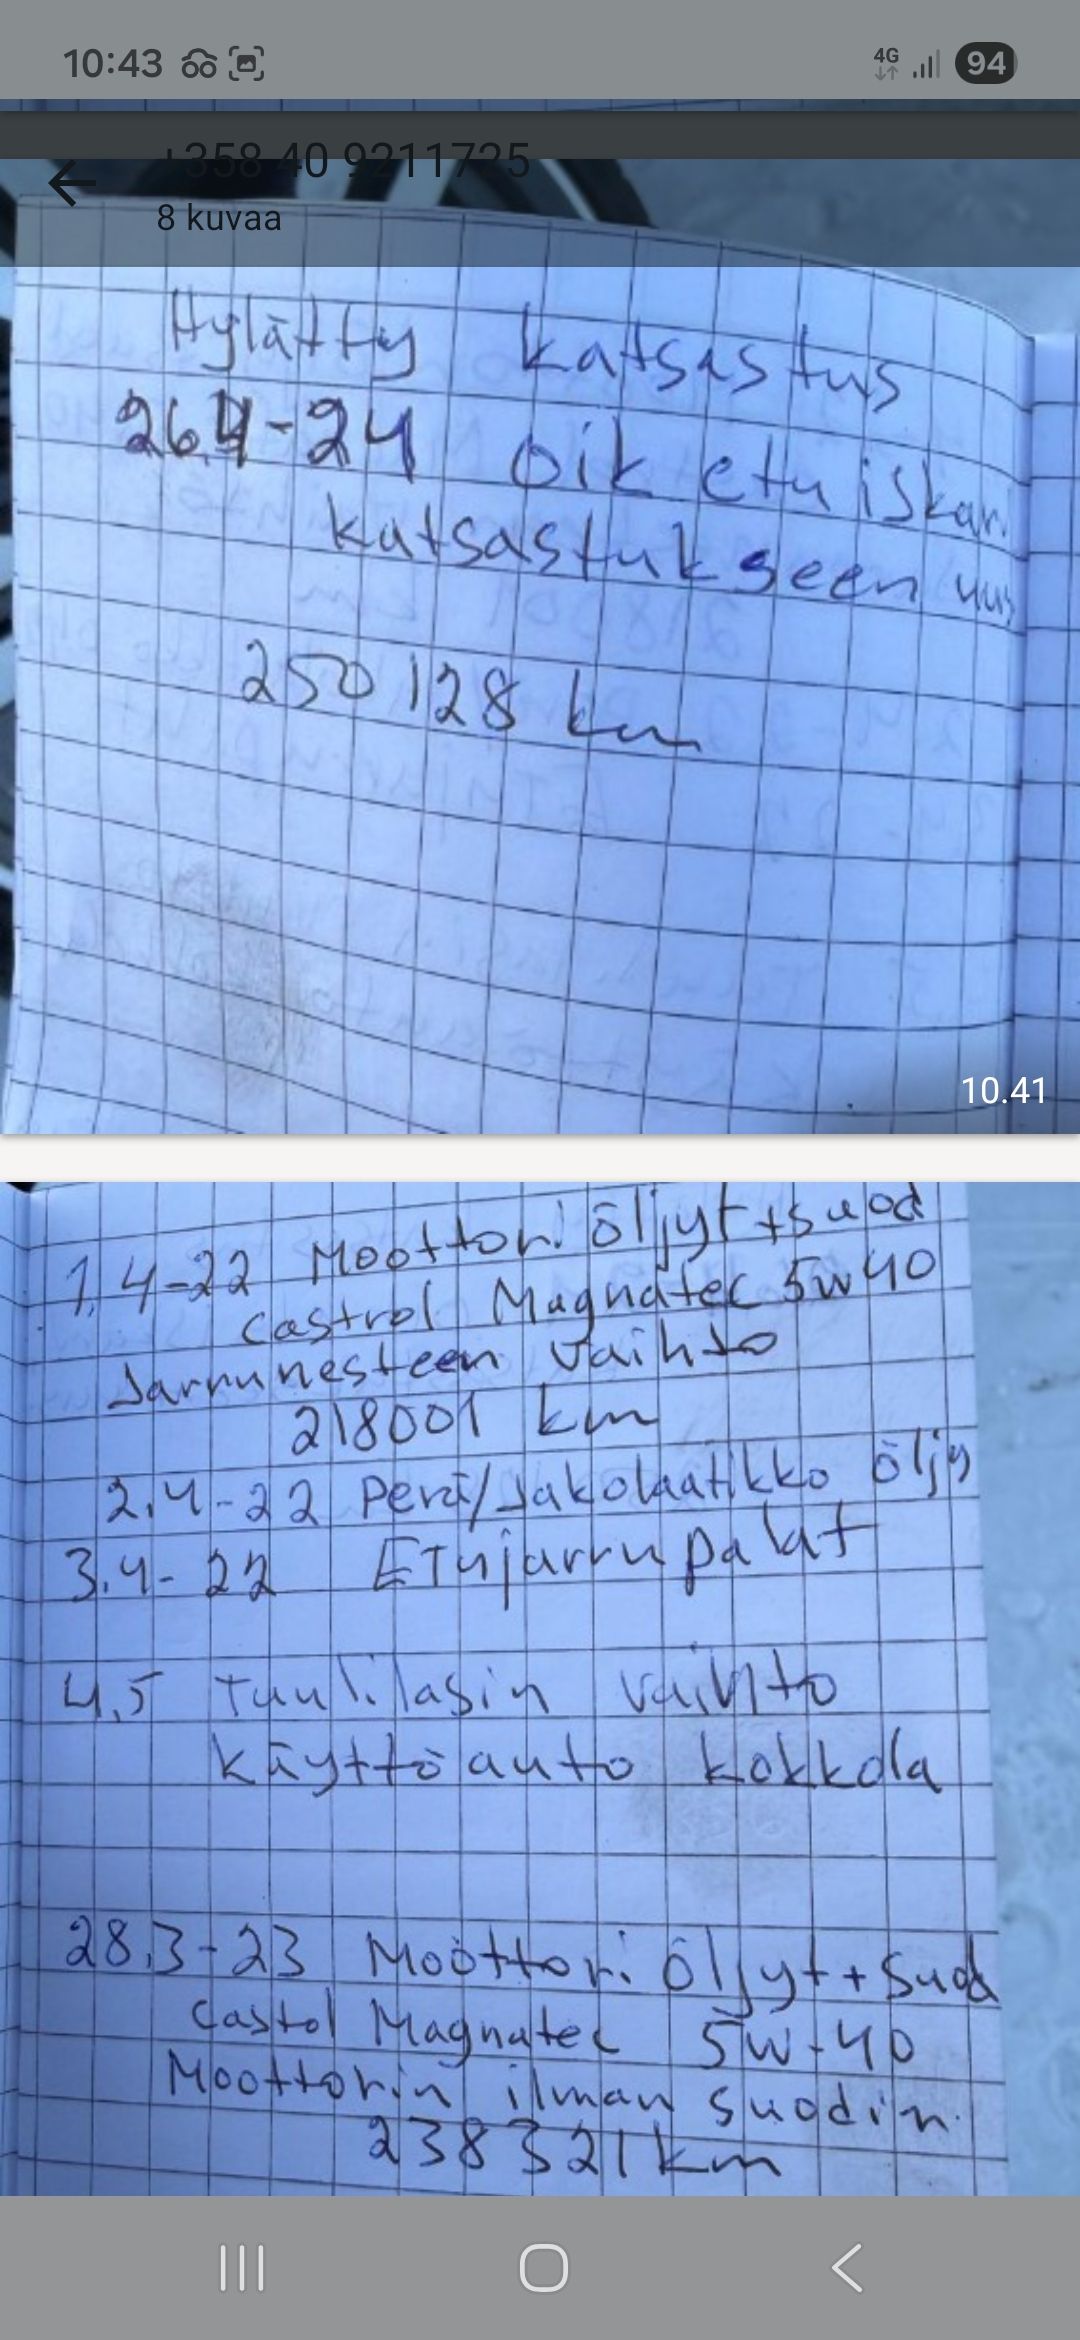 10:43
4G
94
+358 40 9211725
8 kuvaa
Hylätty katsastus
26.4-24 oik etu iskari
katsastukseen uus
250 128 km
10.41
1.4-22 Moottori öljyt+suod
Castrol Magnatec 5w40
Jarrunesteen vaihto
218001 km
2.4-22 Perä/Jakolaatikko öljy
3.4-22 Etujarrupalat
4.5 Tuulilasin vaihto
Käyttöauto kokkola
28.3-23 Moottori öljyt+suod
Castol Magnatec 5w-40
Moottorin ilman suodin.
238 321 km